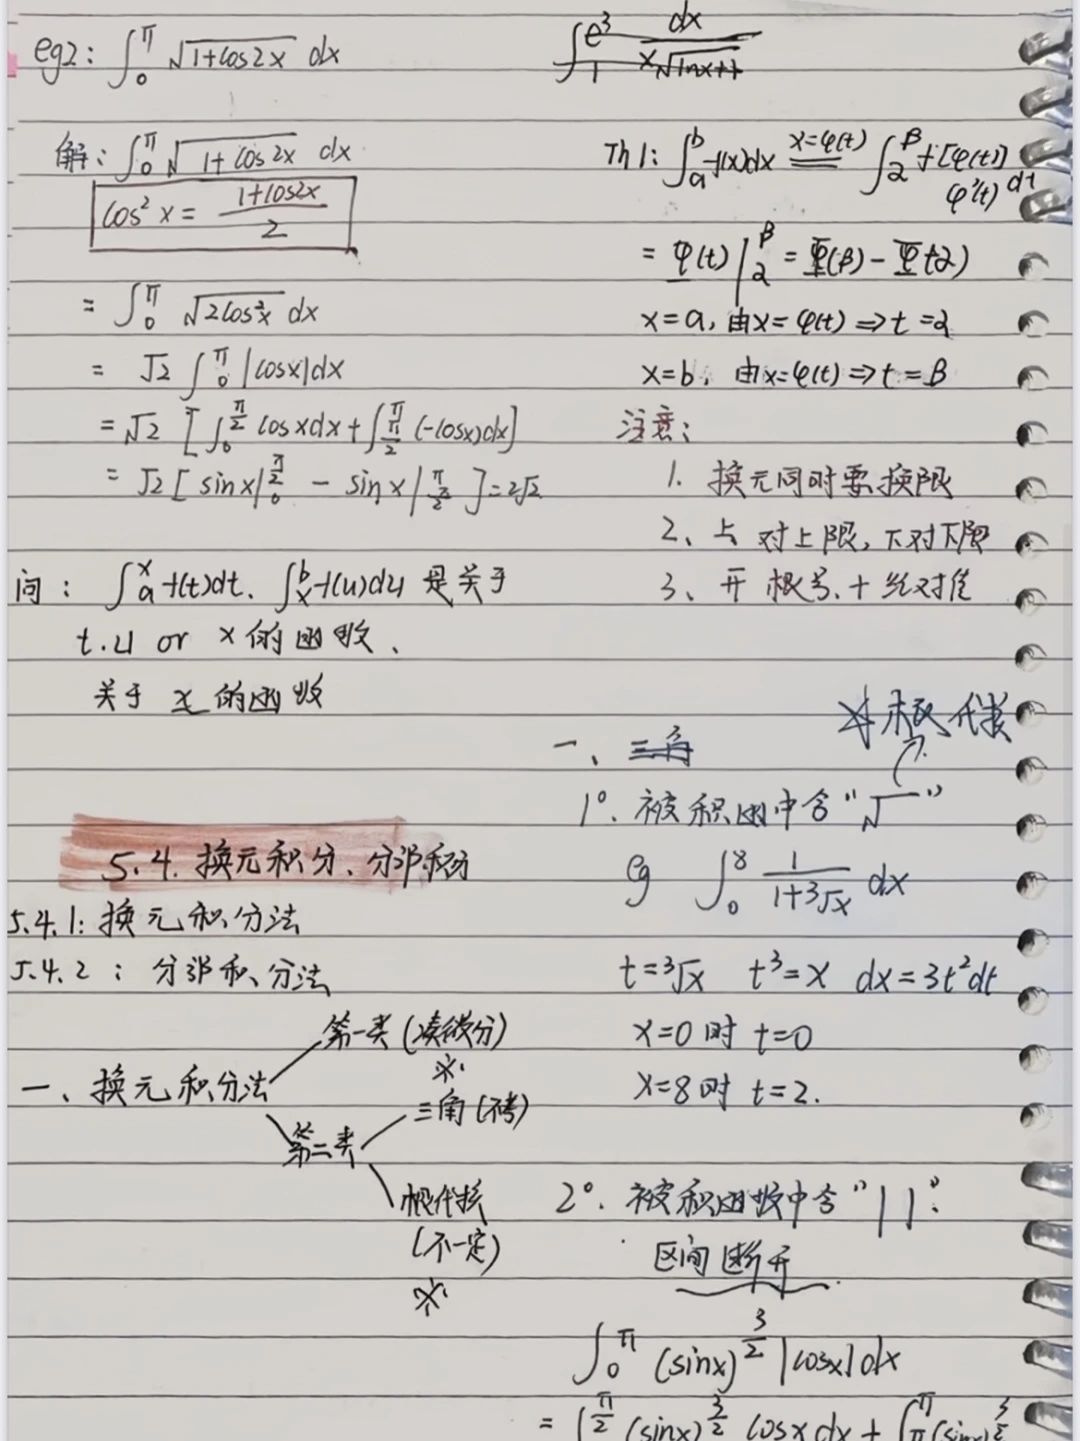 eg2: ∫₀^π √(1+cos2x) dx
解: ∫₀^π √(1+cos2x) dx
cos²x = (1+cos2x)/2
= ∫₀^π √(2cos²x) dx
= √2 ∫₀^π |cosx|dx
= √2 [∫₀^(π/2) cosxdx + ∫_(π/2)^π (-cosx)dx]
= √2 [sinx|₀^(π/2) - sinx|_(π/2)^π] = 2√2
问: ∫ₐ^x f(t)dt、∫ₓ^b f(u)du 是关于
t.u or x 的函数、
关于 x 的函数
5.4. 换元积分、分部积分
5.4.1: 换元积分法
5.4.2: 分部积分法
一、换元积分法
第一类(凑微分)
※.
第二类
三角(不考)
根代换
(不一定)
※.
∫₁^(e³) dx/(x√(lnx+1))
Th1: ∫ₐ^b f(x)dx x=φ(t) ∫_α^β f[φ(t)]
φ'(t) dt
= Φ(t)|_α^β = Φ(β) - Φ(α)
x=a, 由x=φ(t) ⇒ t=α
x=b, 由x=φ(t) ⇒ t=β
注意:
1. 换元同时要换限
2、上对上限, 下对下限
3、开根号、+绝对值
根代换
一、三角
1°. 被积函中含"√"
eg ∫₀^8 1/(1+³√x) dx
t=³√x t³=x dx=3t²dt
x=0时 t=0
x=8时 t=2.
2°. 被积函数中含"| |".
区间断开
∫₀^π (sinx)^(3/2) |cosx|dx
= ∫^(π/2) (sinx)^(3/2) cosx dx + ∫^π (sinx)^(3/2)